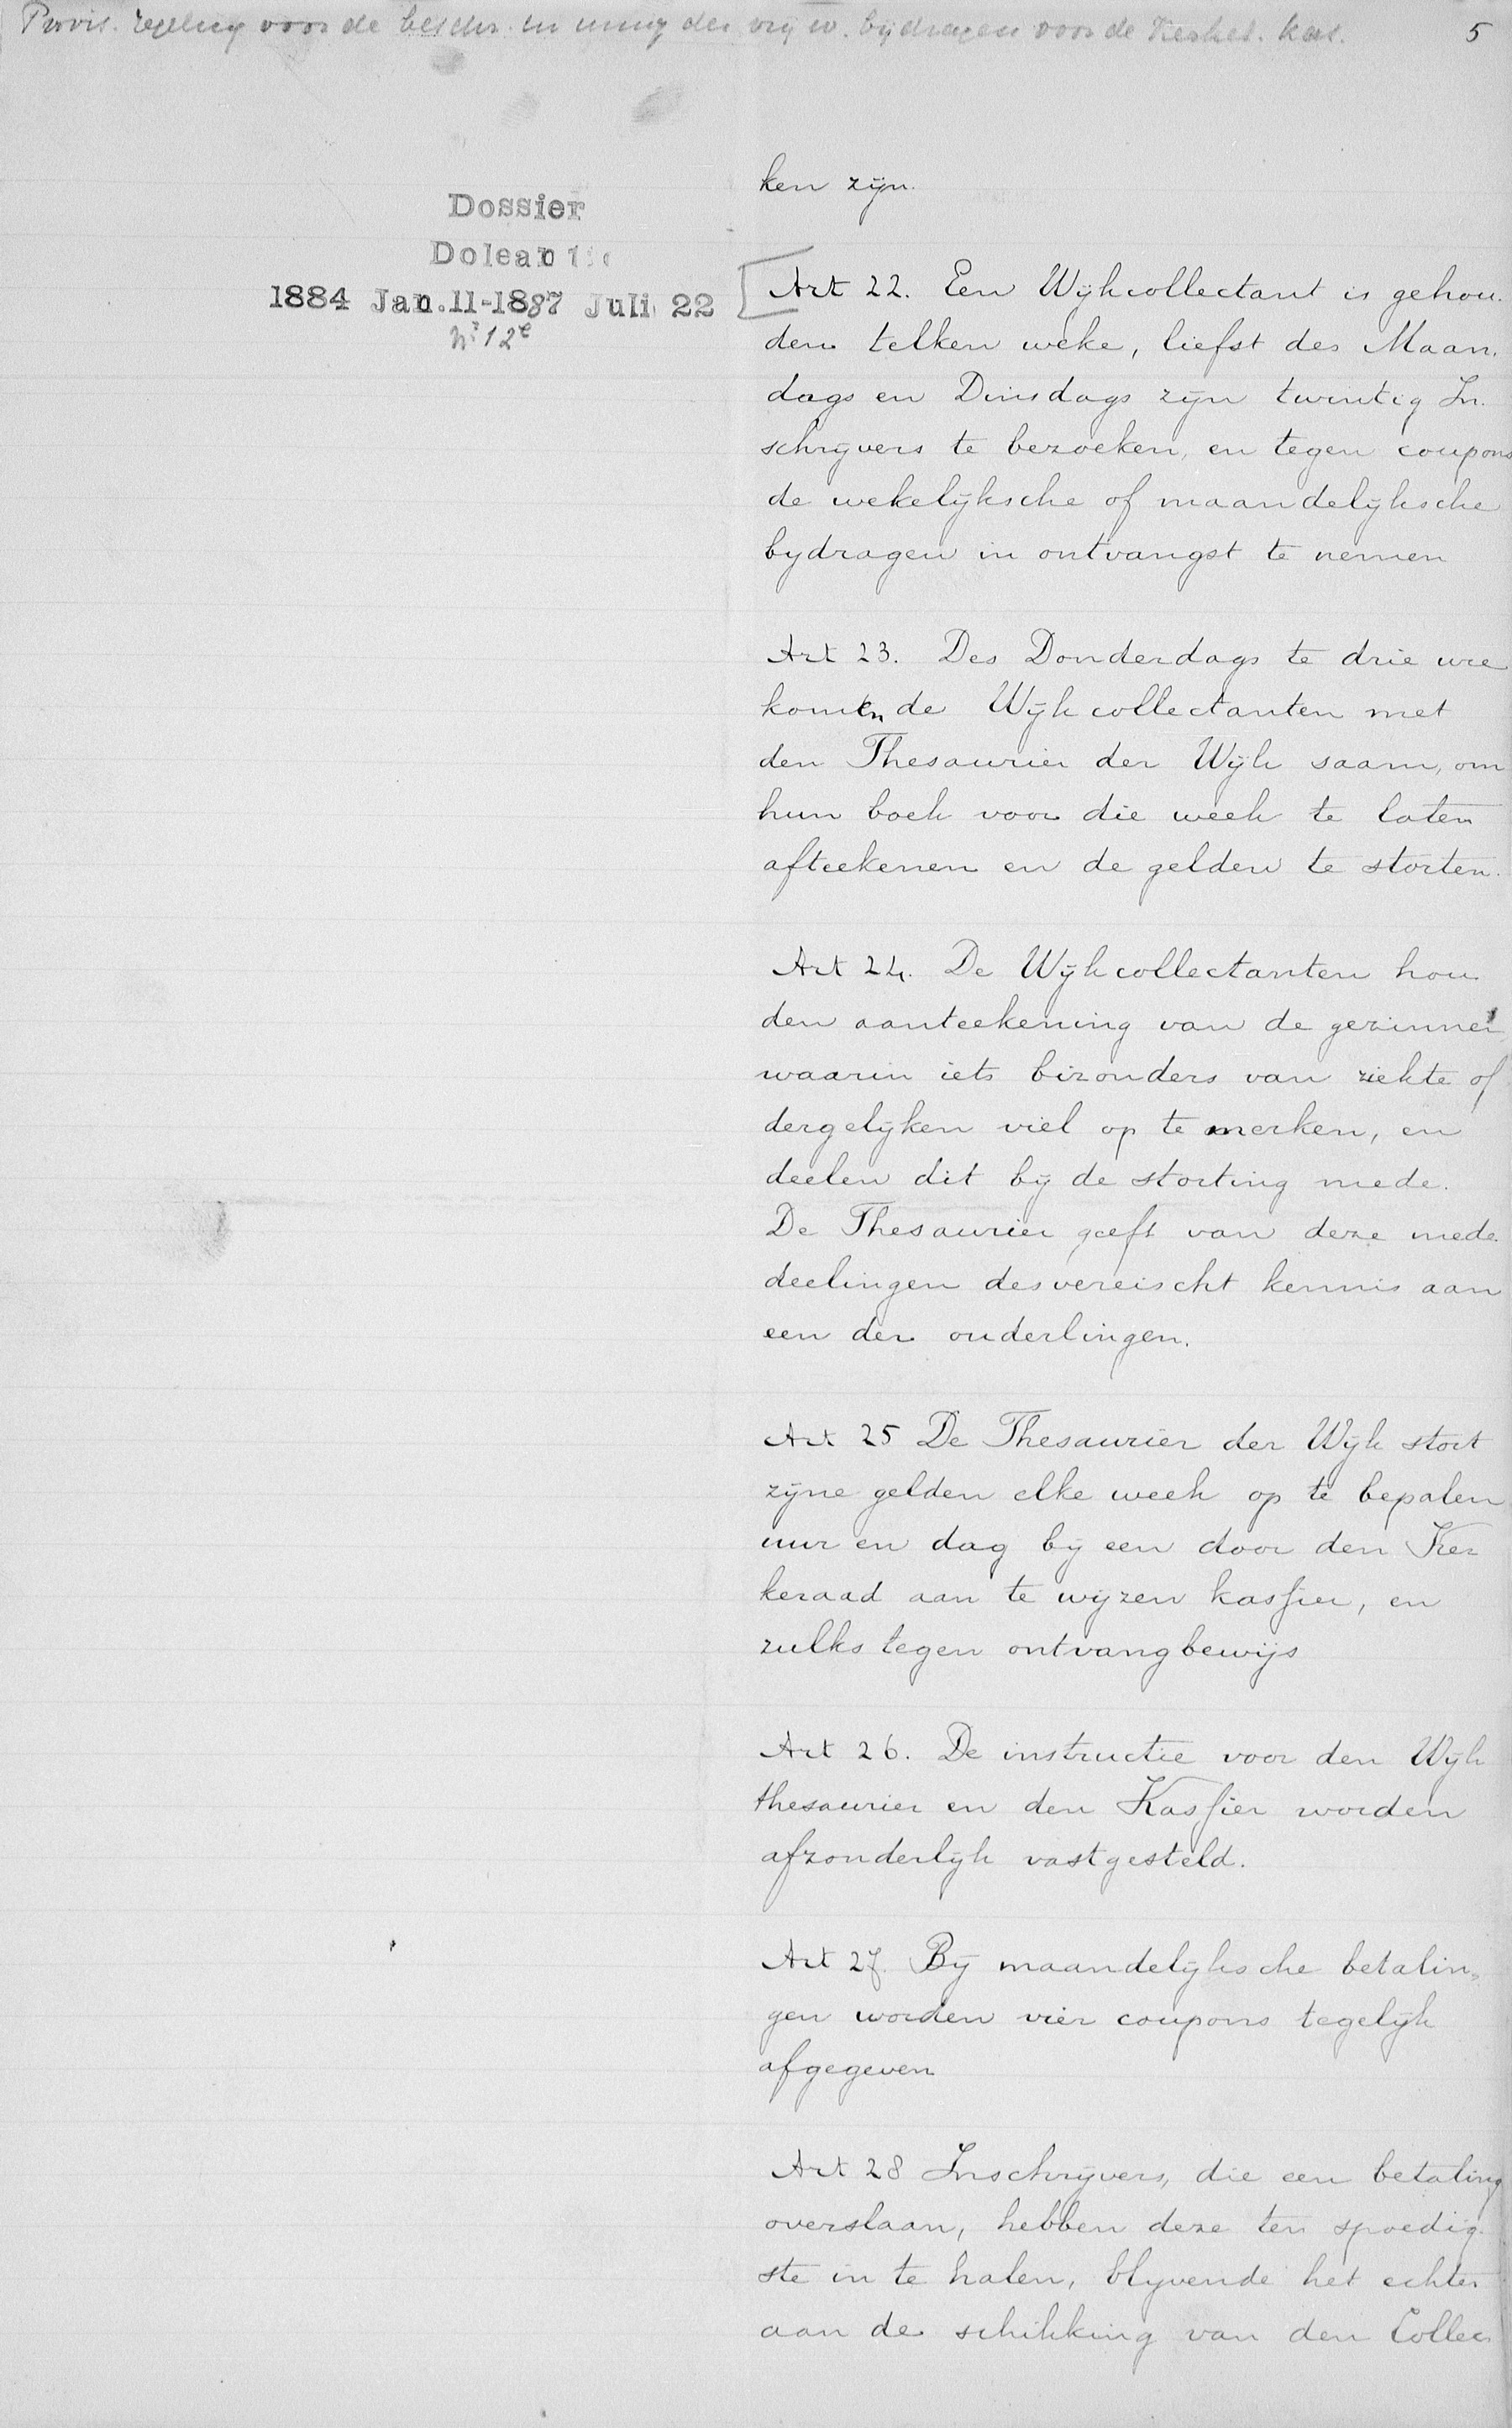 Provis. regeling voor de beschr. en inning der vrijw. bijdragen voor de Kerkel. kas. 5
ken zijn.
Dossier
Doleantie
1884 Jan. 11-1887 Juli 22
No 12e
Art 22. Een Wijkcollectant is gehou-
den telken weke, liefst des Maan-
dags en Dinsdags zijn twintig In-
schrijvers te bezoeken, en tegen coupons
de wekelijksche of maandelijksche
bijdragen in ontvangst te nemen
Art 23. Des Donderdags te drie ure
komen de Wijkcollectanten met
den Thesaurier der Wijk saam, om
hun boek voor die week te laten
afteekenen en de gelden te storten.
Art 24. De Wijkcollectanten hou-
den aanteekening van de gezinnen
waarin iets bizonders van ziekte of
dergelijken viel op te merken, en
deelen dit bij de storting mede.
De Thesaurier geeft van deze mede-
deelingen desvereischt kennis aan
een der ouderlingen.
Art 25 De Thesaurier der Wijk stort
zijne gelden elke week op te bepalen
uur en dag bij een door den Ker
keraad aan te wijzen kassier, en
zulks tegen ontvangbewijs
Art 26. De instructie voor den Wijk
thesaurier en den Kassier worden
afzonderlijk vastgesteld.
Art 27. Bij maandelijksche betalin-
gen worden vier coupons tegelijk
afgegeven
Art 28 Inschrijvers, die een betaling
overslaan, hebben deze ten spoedig-
ste in te halen, blijvende het echter
aan de schikking van den Collec-